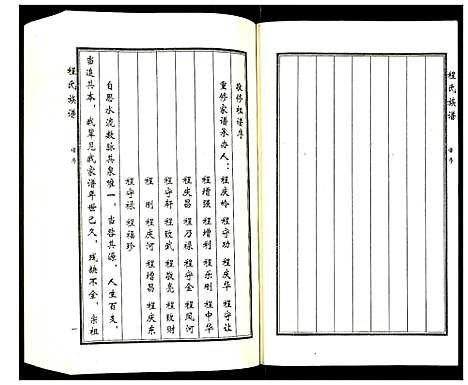 程氏族谱
谱序
敬修祖谱序
重修家谱承办人：
程庆岭 程守功 程庆华 程守让
程增强 程增利 程乐刚 程中华
程庆昌 程乃禄 程守金 程凤河
程守轩 程致武 程敬亮 程致财
程刚 程庆河 程增昌 程庆东
程守禄 程福珍
自思水流数脉其泉唯一，当啓其源。人生百支，
当追其本，我辈见我家谱年世已久，残缺不全，宗祖
程氏族谱
谱序
一